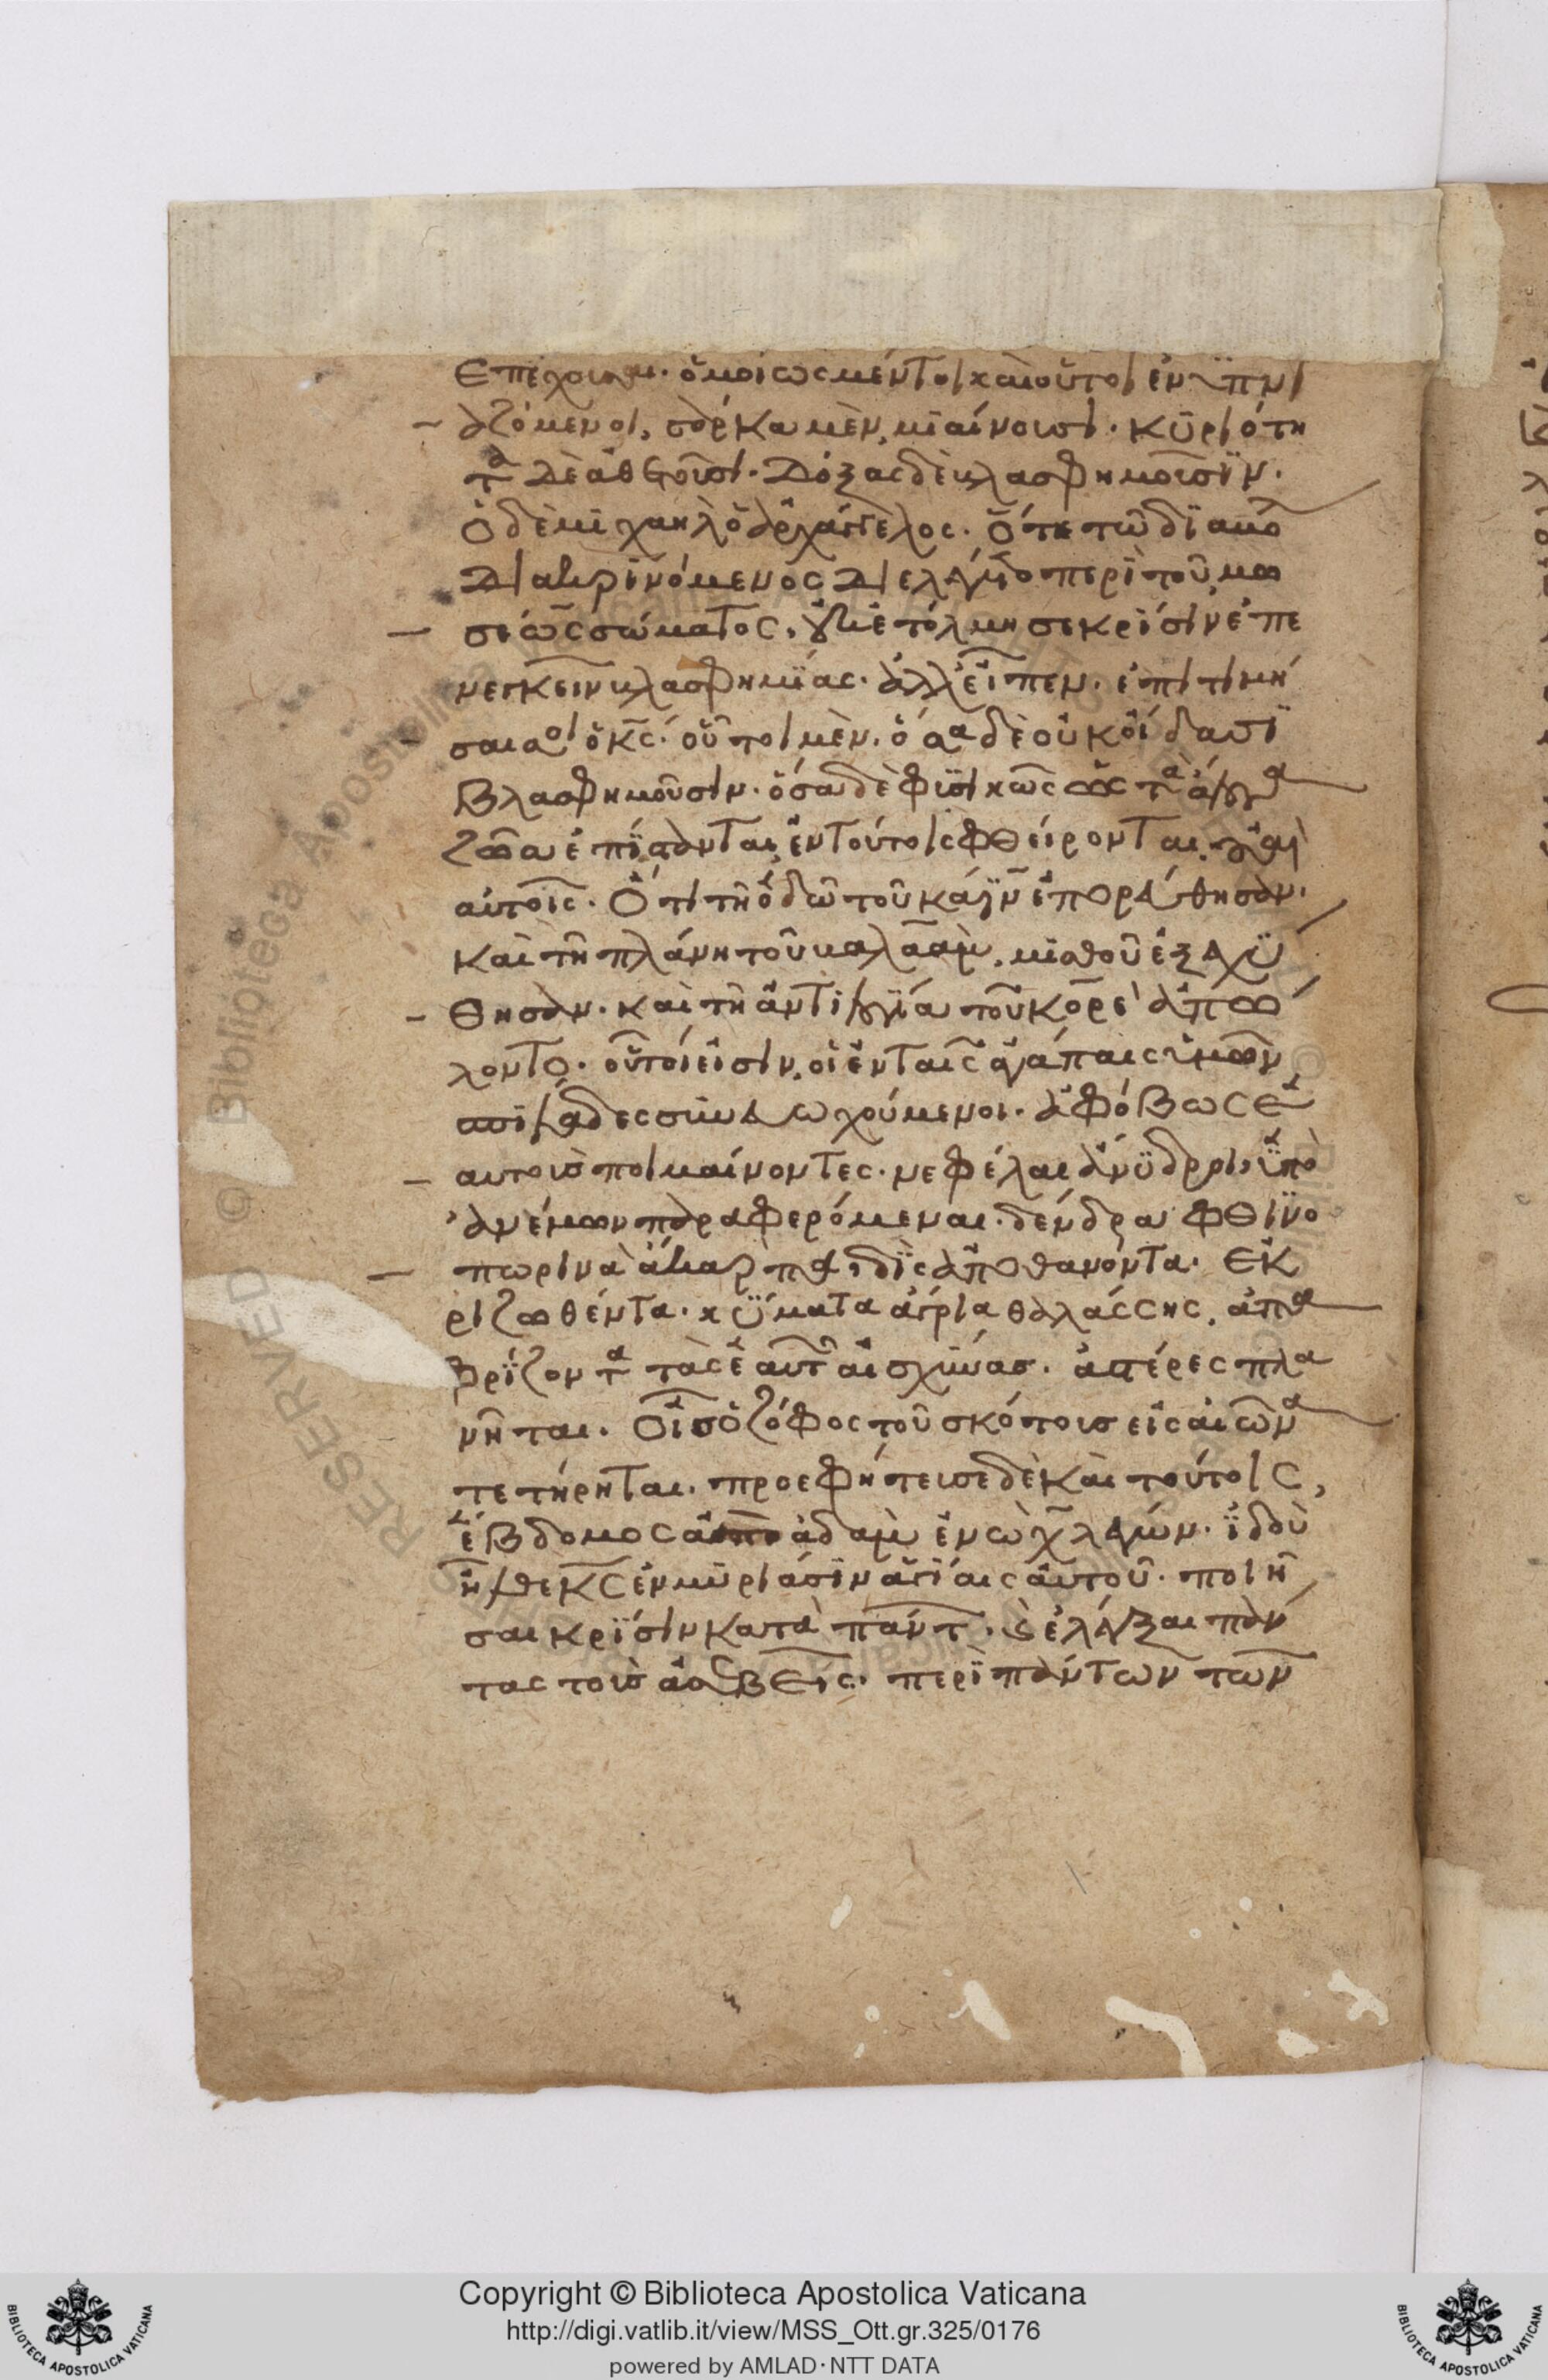 ἐπέχουσαι. ὁμοίως μέντοι καὶ οὗτοι ἐνυπνι
αζόμενοι, σάρκα μὲν μιαίνουσι. κυριότη
τα δὲ ἀθετοῦσι. δόξας δὲ βλασφημοῦσϊν.
ὁ δὲ μιχαὴλ ὁ ἀρχάγγελος. ὅτε τῶ διαβό
διακρινόμενος διελέγετο περὶ τοῦ μω
σέως σώματος, οὐκ ἐτόλμησε κρίσιν ἐπε
νεγκεῖν βλασφημίας. ἀλλ εἶπεν. ἐπιτιμή
σαι σοι ὁ κς. οὗτοι μὲν. ὅσα δὲ οὐκ οἴδασι
βλασφημοῦσιν. ὅσα δὲ φυσικῶς ὡς τὰ ἄλογα
ζῶα ἐπίστανται, ἐν τούτοις φθείρονται. οὐαὶ
αὐτοῖς. ὅτι τῆ ὁδῶ τοῦ κάϊν ἐπορεύθησαν.
καὶ τῆ πλάνη τοῦ βαλαὰμ, μισθοῦ ἐξεχύ
θησαν. καὶ τῆ ἀντιλογία τοῦ κορὲ ἀπώ
λοντο. οὗτοί εἰσιν, οἱ ἐν ταῖς ἀγάπαις ὑμῶν
σπιλάδες συνευωχούμενοι. ἀφόβως ἑ
αυτοὺσ ποιμαίνοντες. νεφέλαι ἄνϋδροι, ὑπὸ
ἀνέμων παραφερόμεναι. δένδρα φθινο
πωρινὰ ἄκαρπα, δὶς ἀποθανόντα. ἐκ
ριζωθέντα. κϋματα ἄγρια θαλάσσης, ἀπα
φρίζοντα τὰς ἑαυτ αἰσχύνασ. ἀστέρες πλα
νῆται. οἷσ ὁ ζόφος τοῦ σκότουσ εἰς αἰῶνα
τετήρηται. προεφήτευσε δὲ καὶ τούτοις,
ἕβδομος ἀπὸ ἀδαμ ἐνὼχ λέγων. ἰδοὺ
ἦλθε κς ἐν μυριάσιν ἁγίαις αὐτοῦ. ποιῆ
σαι κρίσιν κατὰ πάντ. καὶ ἐλέγξαι πάν
τας τοὺσ ἀσεβεῖς. περὶ πάντων τῶν
Copyright © Biblioteca Apostolica Vaticana
http://digi.vatlib.it/view/MSS_Ott.gr.325/0176
powered by AMLAD·NTT DATA